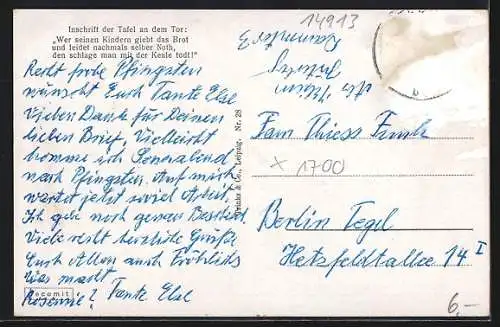 Inschrift der Tafel an dem Tor:
"Wer seinen Kindern giebt das Brot
und leidet nachmals selber Noth,
den schlage man mit der Keule todt!"
Recht frohe Pfingsten
wünscht Euch Tante Else
Vielen Dank für Deinen
lieben Brief. Vielleicht
komme ich Sonnabend
nach Pfingsten. Auf mich
wartet jetzt soviel Arbeit.
Ich gebe noch genau Bescheid.
Viele recht herzliche Grüße
Euch Allen auch Fröhlichs
Was macht
Rosemie? Tante Else
Trinks & Co., Leipzig. Nr. 28
14913
Jüterbog
Fam Thiess Funk
x 1700
Berlin Tegel
Hatzfeldtallee 14 I
6,-